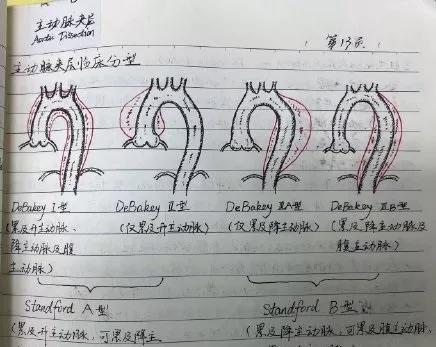 主动脉夹层
Aortic Dissection
第13页
主动脉夹层临床分型
DeBakey I 型
(累及升主动脉、
降主动脉及腹
主动脉)
DeBakey II 型
(仅累及升主动脉)
DeBakey III A型
(仅累及降主动脉)
DeBakey III B型
(累及降主动脉及
腹主动脉)
Standford A型
(累及升主动脉,可累及降主
Standford B型
(累及降主动脉,可累及腹主动脉,